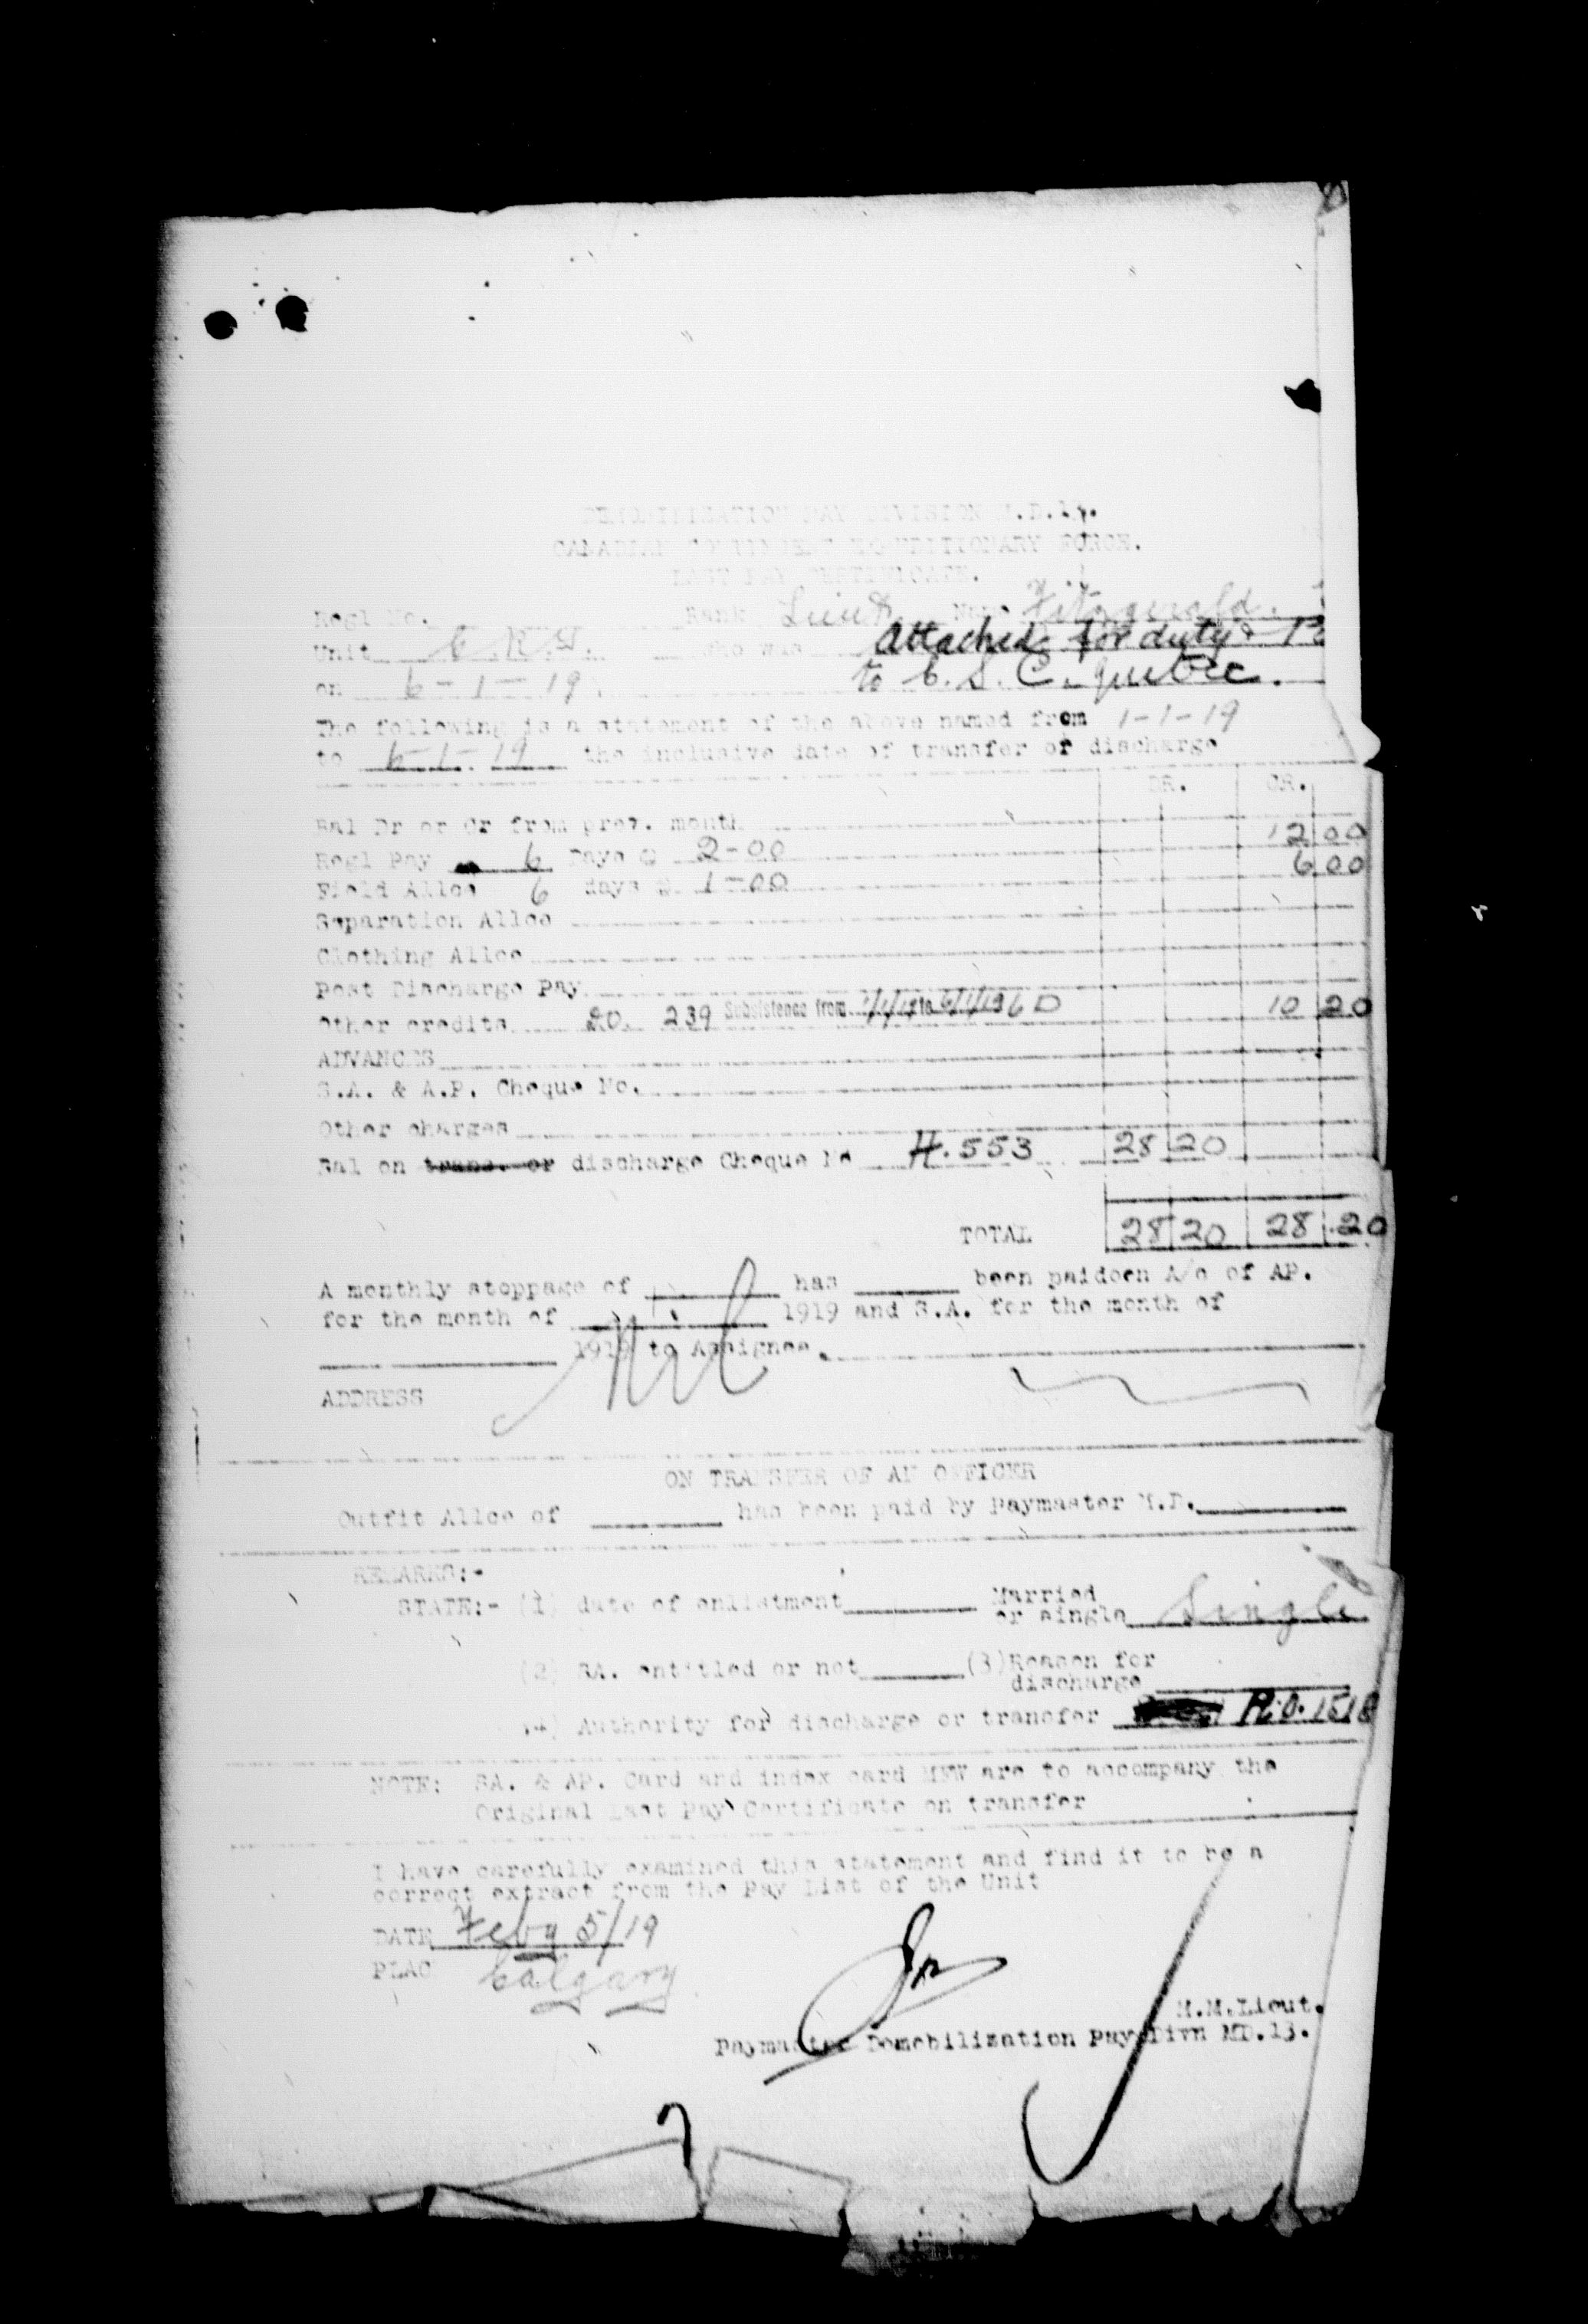 DEMOBILIZATION PAY DIVISION M.D.13.
CANADIAN CONTINGENT EXPEDITIONARY FORCE.
LAST PAY CERTIFICATE.
Regl No. Rank Lieut Name Fitzgerald.
Unit who was Attached for duty
on 6-1-19 to C.S.C. Quebec.
The following is a statement of the above named from 1-1-19
to 6-1-19 the inclusive date of transfer or discharge
DR. CR.
Bal Dr or Cr from prev. month
Regl Pay 6 Days @ 2-00 12 00
Field Allce 6 days @ 1-00 6 00
Separation Allce
Clothing Allce
Post Discharge Pay
Other credits 239 Subsistence from 1/1/19 to 6/1/19 6 D 10 20
ADVANCES
S.A. & A.P. Cheque No.
Other charges
Bal on trans. or discharge Cheque No H.553 28 20
TOTAL 28 20 28 20
A monthly stoppage of has been paidoen A/c of AP.
for the month of 1919 and S.A. for the month of
1919 to Assignee.
Nil
ADDRESS
ON TRANSFER OF AN OFFICER
Outfit Allce of has been paid by Paymaster M.D.
REMARKS:-
STATE:- (1) date of enlistment Married
or single Single
(2) SA. entitled or not (3) Reason for
discharge
(4) Authority for discharge or transfer R.O. 1518
NOTE: SA. & AP. Card and index card MFW are to accompany the
Original Last Pay Certificate on transfer
I have carefully examined this statement and find it to be a
correct extract from the Pay List of the Unit
DATE Feby 5/19
PLAC Calgary
M.M.Lieut.
Paymaster Demobilization Pay Divn MD.13.